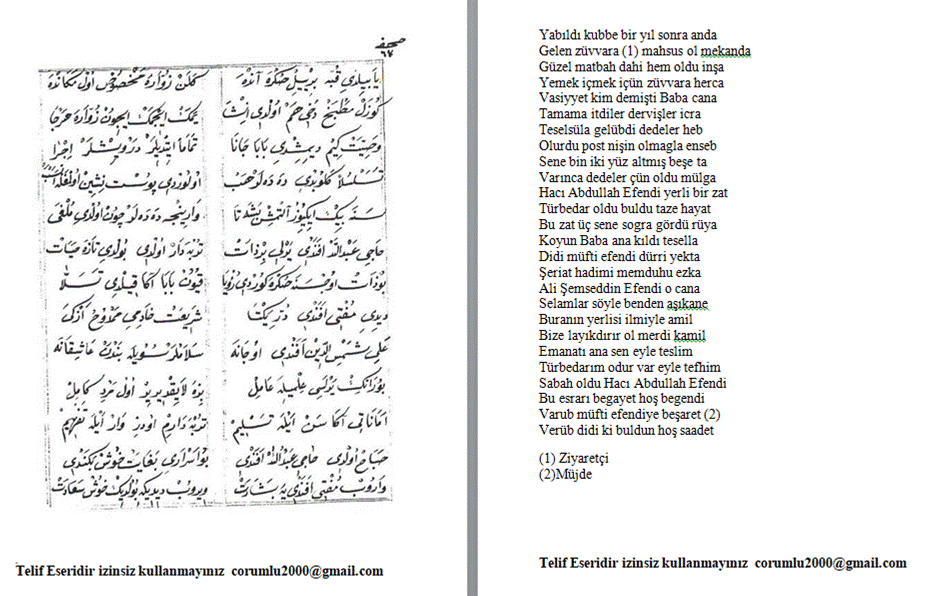 صحيفه
٦٧
يابيلدى قبه بر ييل صكره آنده كلن زواره مخصوص اول مكانده
كوزل مطبخ دخى هم اولدى انشا يمك ايچمك ايچون زواره هرجا
وصيت كيم ديمشدى بابا جانا تماما ايتديلر درويشلر اجرا
تسلسلا كلوبدى دده لر هب اولوردى پوست نشين اولمغله انسب
سنه بيك ايكيوز آلتمش بشه تا وارينجه دده لر چون اولدى ملغى
حاجى عبدالله افندى يرلى بر ذات تربه دار اولدى بولدى تازه حيات
بو ذات اوچ سنه صكره كوردى رؤيا قيون بابا اكا قيلدى تسلا
ديدى مفتى افندى در يكتا شريعت خادمى ممدوح ازكى
على شمس الدين افندى او جانه سلاملر سويله بندن عاشقانه
بورانك يرلسى علميله عامل بزه لايقديرير اول مرد كامل
اماناتى اكا سن ايله تسليم تربه دارم اودر وار ايله تفهيم
صباح اولدى حاجى عبدالله افندى بو اسرارى بغايت خوش بكندى
واروب مفتى افندى يه بشارت ويروب ديديكه بولدك خوش سعادت
Telif Eseridir izinsiz kullanmayınız corumlu2000@gmail.com
Yabıldı kubbe bir yıl sonra anda
Gelen züvvara (1) mahsus ol mekanda
Güzel matbah dahi hem oldu inşa
Yemek içmek içün züvvara herca
Vasiyyet kim demişti Baba cana
Tamama itdiler dervişler icra
Teselsüla gelübdi dedeler heb
Olurdu post nişin olmagla enseb
Sene bin iki yüz altmış beşe ta
Varınca dedeler çün oldu mülga
Hacı Abdullah Efendi yerli bir zat
Türbedar oldu buldu taze hayat
Bu zat üç sene sogra gördü rüya
Koyun Baba ana kıldı tesella
Didi müfti efendi dürri yekta
Şeriat hadimi memduhu ezka
Ali Şemseddin Efendi o cana
Selamlar söyle benden aşıkane
Buranın yerlisi ilmiyle amil
Bize layıkdırır ol merdi kamil
Emanatı ana sen eyle teslim
Türbedarım odur var eyle tefhim
Sabah oldu Hacı Abdullah Efendi
Bu esrarı begayet hoş begendi
Varub müfti efendiye beşaret (2)
Verüb didi ki buldun hoş saadet
(1) Ziyaretçi
(2)Müjde
Telif Eseridir izinsiz kullanmayınız corumlu2000@gmail.com